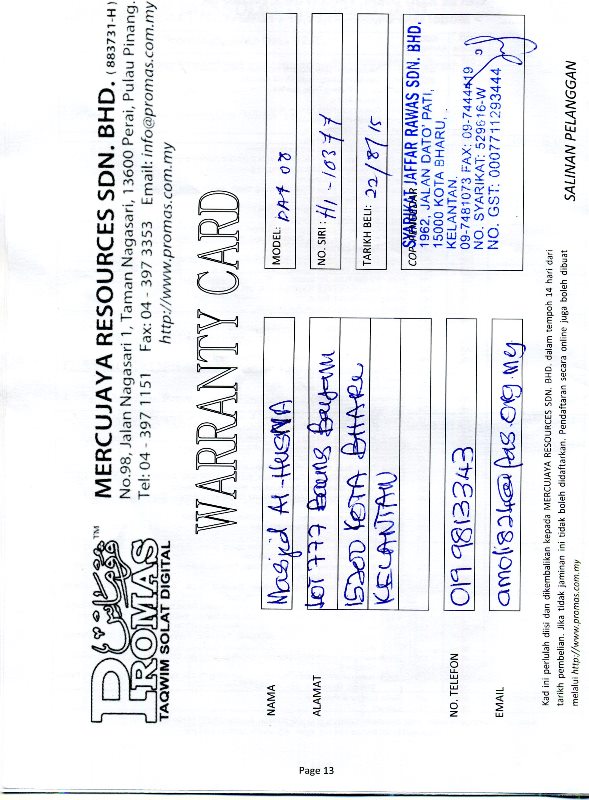 PROMAS™
TAQWIM SOLAT DIGITAL
MERCUJAYA RESOURCES SDN. BHD. (883731-H)
No.98, Jalan Nagasari 1, Taman Nagasari, 13600 Perai, Pulau Pinang.
Tel: 04 - 397 1151 Fax: 04 - 397 3353 Email: info@promas.com.my
http://www.promas.com.my
WARRANTY CARD
NAMA
Masjid Al-Husna
ALAMAT
LOT 777
15200 KOTA BHARU
KELANTAN
NO. TELEFON
019 9813343
EMAIL
MODEL: DA4 08
NO. SIRI: H1-10377
TARIKH BELI: 22/8/15
SYARIKAT JAFFAR RAWAS SDN. BHD.
1962, JALAN DATO' PATI,
15000 KOTA BHARU,
KELANTAN.
09-7481073 FAX: 09-7444419
NO. SYARIKAT: 529616-W
NO. GST: 000771129344​4
Kad ini perlulah diisi dan dikembalikan kepada MERCUJAYA RESOURCES SDN. BHD. dalam tempoh 14 hari dari
tarikh pembelian. Jika tidak jaminan ini tidak boleh didaftarkan. Pendaftaran secara online juga boleh dibuat
melalui http://www.promas.com.my
SALINAN PELANGGAN
Page 13